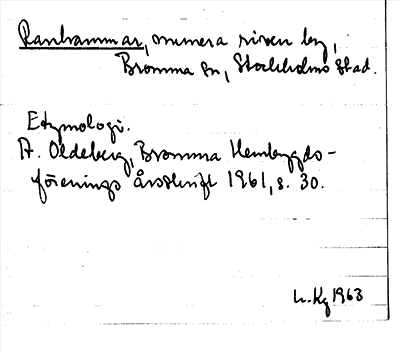 Ranhammar, numera riven by,
Bromma sn, Stockholms stad.
Etymologi.
A. Oldeberg, Bromma Hembygds-
förenings Årsskrift 1961, s. 30.
h. Kg 1963